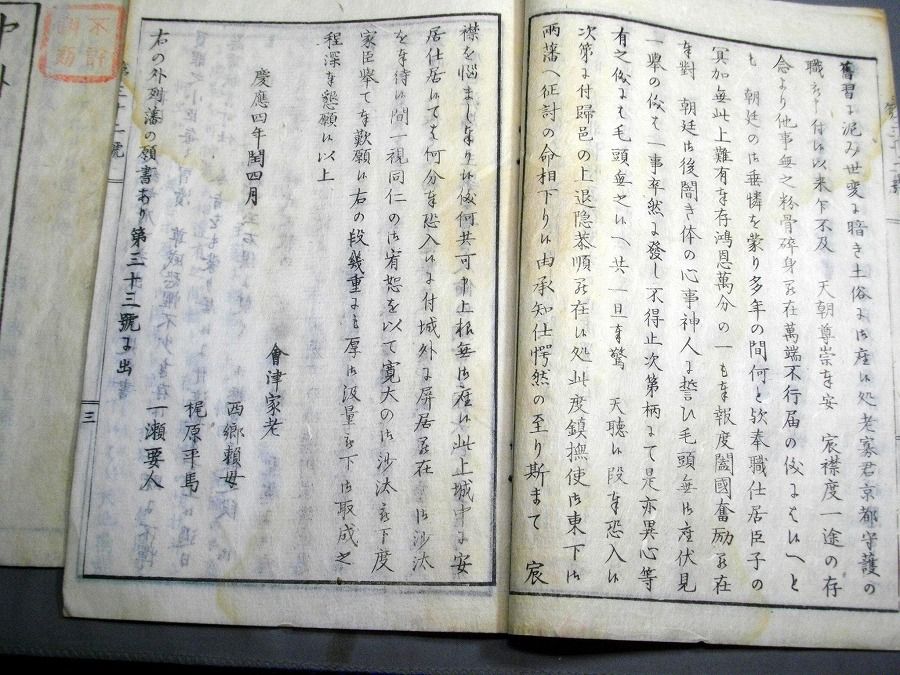 舊習ニ泥み世変ニ暗き土俗ニ御座い処老寡君京都守護の
職被申付い以来乍不及 天朝尊崇を安 宸襟度一途の存
念より他事無之粉骨碎身罷在萬端不行届の儀ニはいへと
も 朝廷の御垂憐を蒙り多年の間何と欤奉職仕居臣子の
冥加無此上難有奉存鴻恩萬分の一も奉報度闔國奮励罷在
奉對 朝廷い後闇き体の心事神人ニ誓ひ毛頭無御座伏見
一舉の儀は一事卒然ニ發し不得止次第柄ニて是亦異心等
有之儀ニも毛頭無之いへ共一旦奉驚 天聴い段奉恐入い
次第ニ付歸邑の上退隐恭順罷在い処此度鎮撫使御東下御
両藩へ征討の命相下りい由承知仕愕然の至り斯まて 宸
襟を悩ましをりい儀何共可申上様無御座い此上城中ニ安
居仕居いても何分奉恐入いニ付城外ニ屏居罷在 御沙汰
を奉待い間一視同仁の御宥恕を以て寛大の御沙汰被下度
家臣舉て奉歎願い右の段幾重ニも厚御汲量被下御取成之
程深奉懇願い以上
慶應四年閏四月
會津家老
西郷頼母
梶原平馬
一瀬要人
右の外列藩の願書あり第三十三號ニ出
三